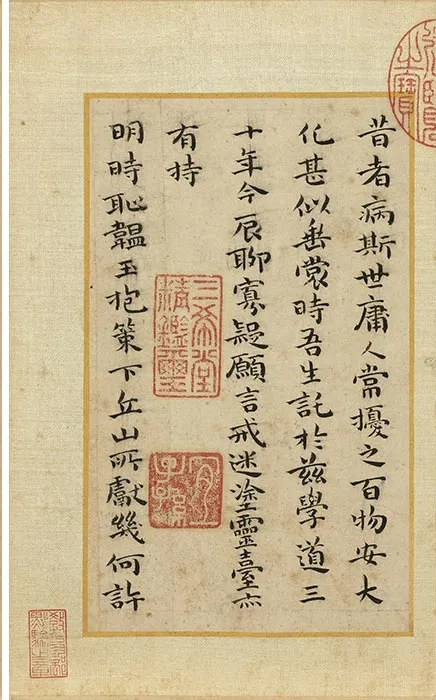 昔者病斯世庸人常擾之百物安大
化甚似垂裳時吾生託於茲學道三
十年今辰聊寡疑願言戒迷塗靈臺亦
有持
明時恥韞玉抱策下丘山所獻幾何許
三希堂精鑑璽
宜子孫
之寶